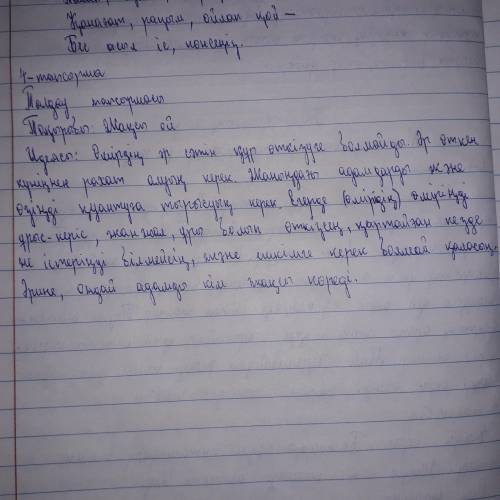 Қанағат, рақым, ойлап қой —
Бес асыл іс, көнсеңіз.
4-тапсырма
Талдау тапсырмасы
Тақырыбы: Жақсы ой
Идеясы: Өмірдің әр сәтін құр өткізуге болмайды. Әр өткен
күніңнен рахат алуың керек. Жаныңдағы адамдарды және
өзіңді қуантуға тырысуың керек. Егерде (өміріңді) өміріңді
ұрыс-керіс, жанжал, ұры болып өткізсең, қартайған кезде
не істеріңді білмейсің, және ешкімге керек болмай қаласың.
Әрине, ондай адамды кім жақсы көреді.